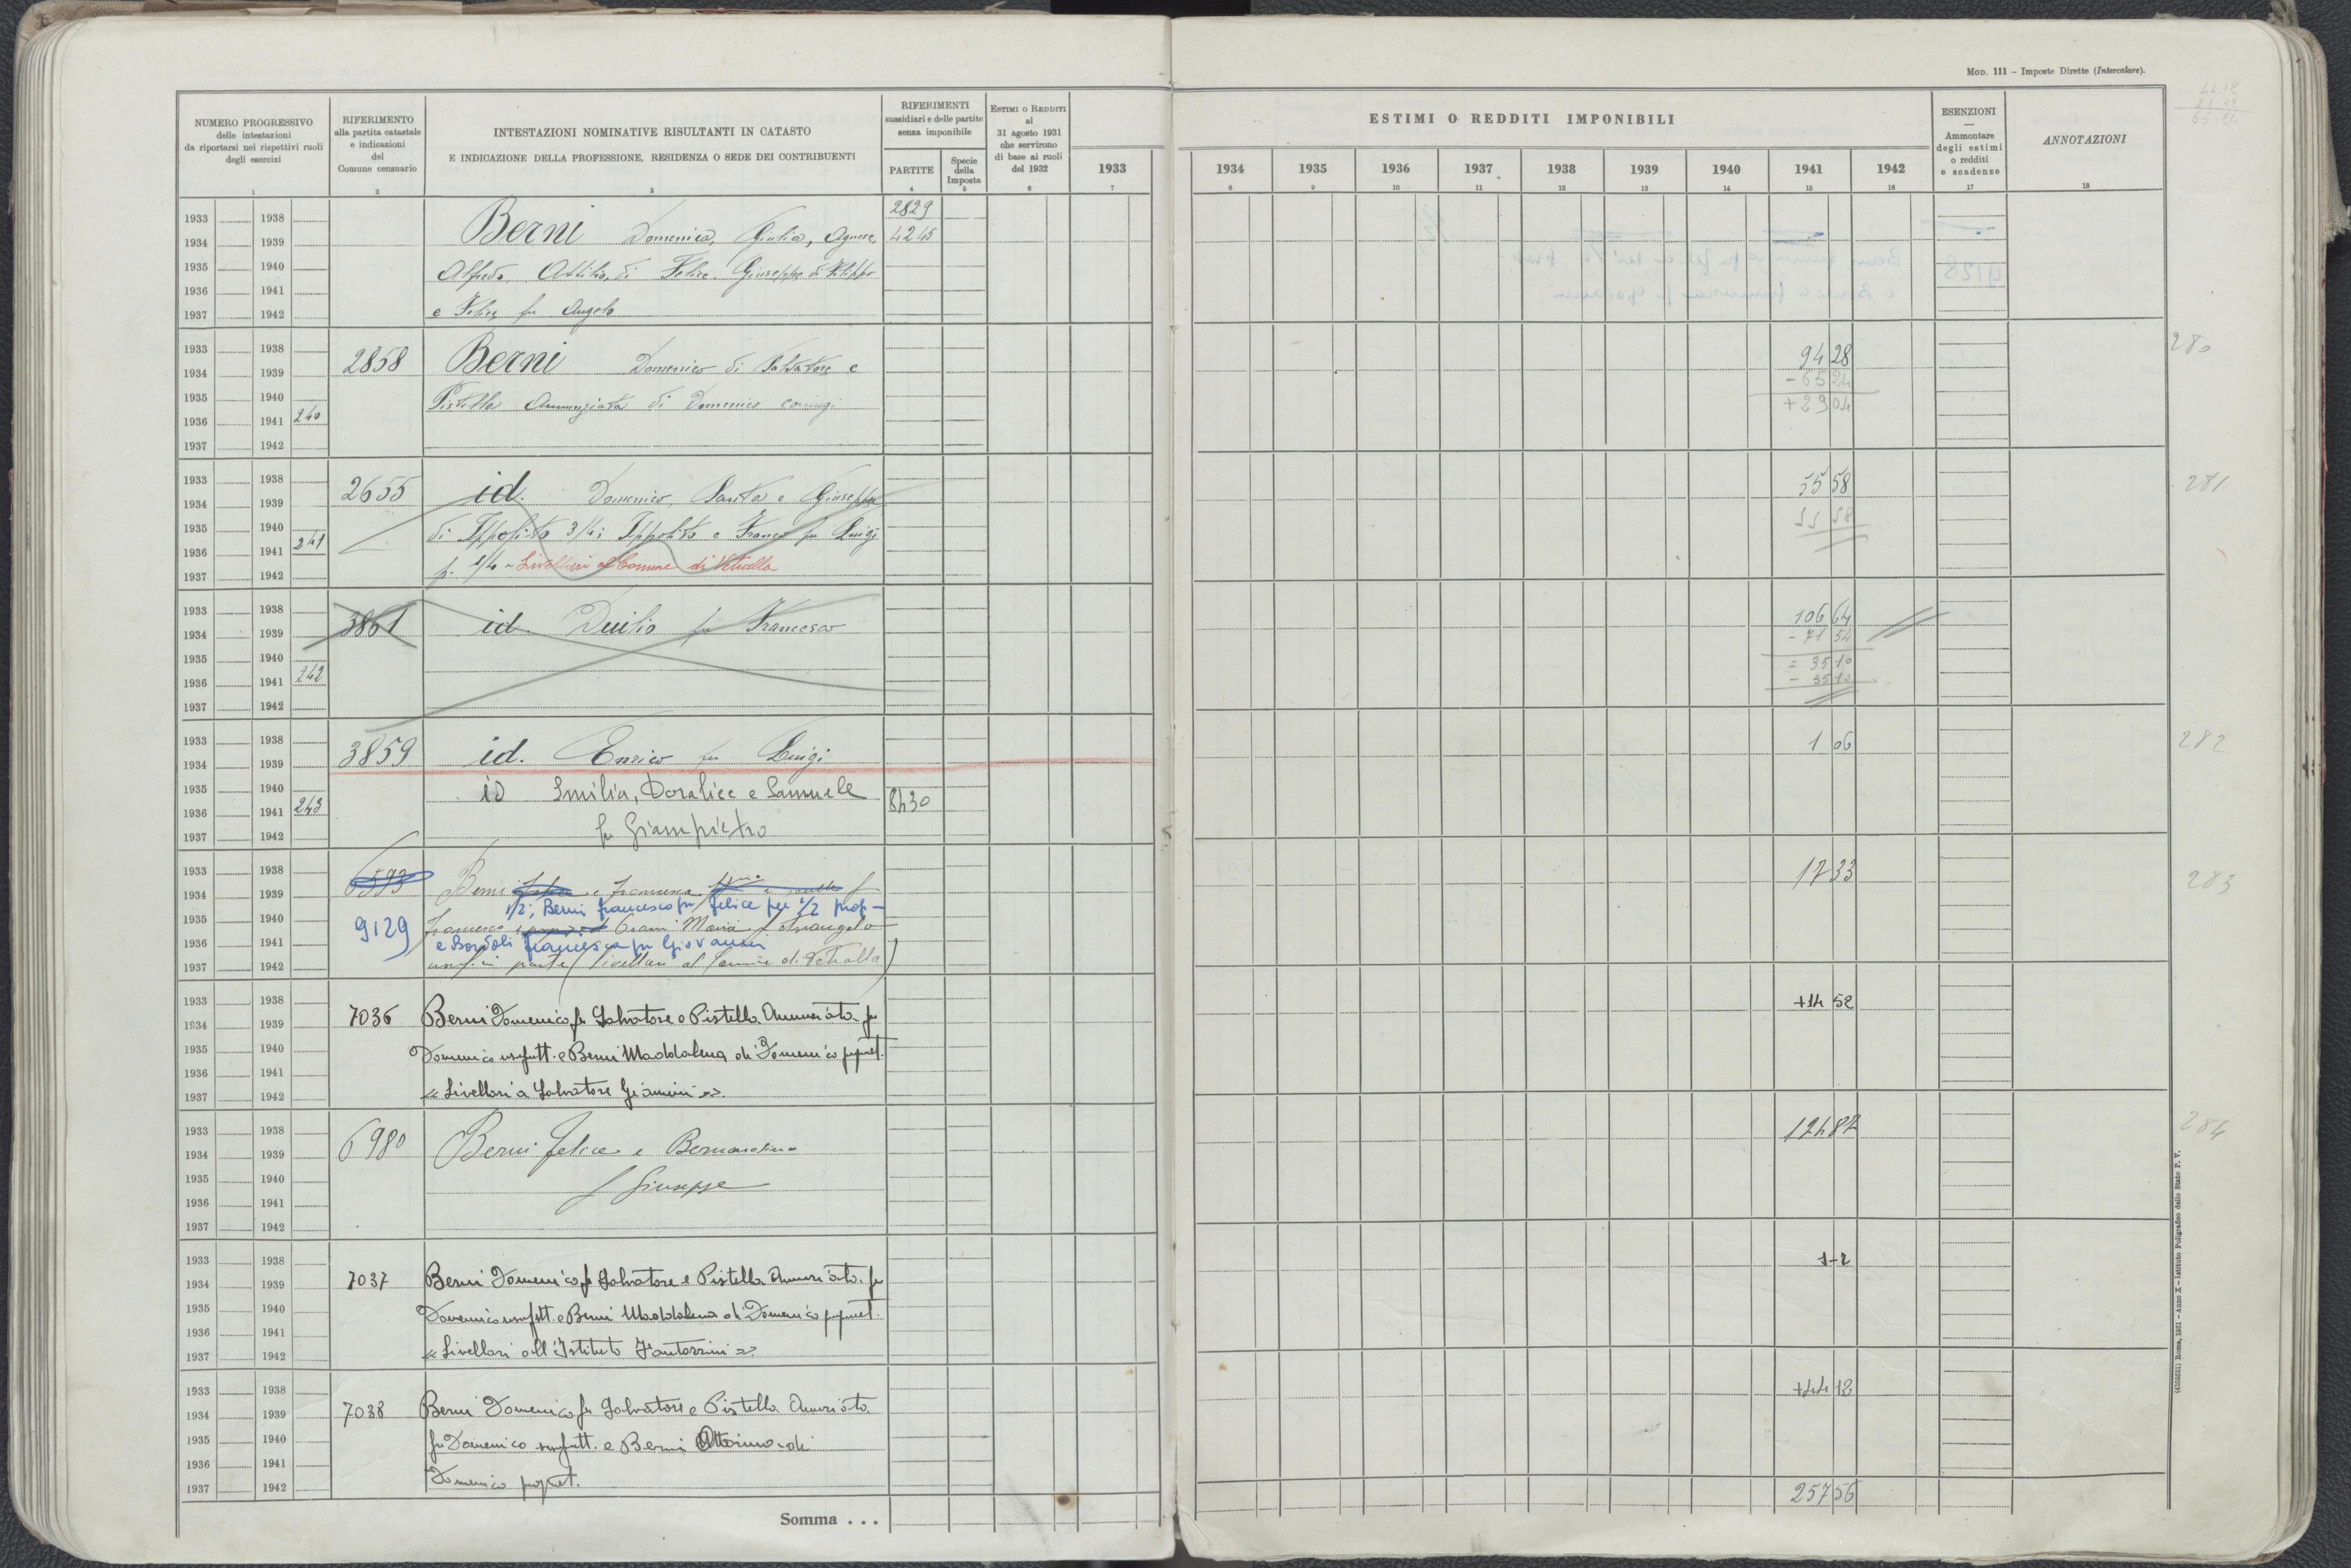 MOD. 111 – Imposte Dirette (Intercalare).
NUMERO PROGRESSIVO
delle intestazioni
da riportarsi nei rispettivi ruoli
degli esercizi
1
RIFERIMENTO
alla partita catastale
e indicazioni
del
Comune censuario
2
INTESTAZIONI NOMINATIVE RISULTANTI IN CATASTO
E INDICAZIONE DELLA PROFESSIONE, RESIDENZA O SEDE DEI CONTRIBUENTI
3
RIFERIMENTI
sussidiari e delle partite
senza imponibile
PARTITE
4
Specie
della
Imposta
5
ESTIMI O REDDITI
al
31 agosto 1931
che servirono
di base ai ruoli
del 1932
6
1933
7
ESTIMI O REDDITI IMPONIBILI
1934 1935 1936 1937 1938 1939 1940 1941 1942
8 9 10 11 12 13 14 15 16
ESENZIONI
—
Ammontare
degli estimi
o redditi
e scadenze
17
ANNOTAZIONI
18
1933 1938 2829
1934 1939 Berni Domenica, Giulia, Agnese, 4245
1935 1940 Alfredo, Attilio, di Felice. Giuseppe di Filippo
1936 1941
1937 1942 e Felice fu Angelo
1933 1938 94 28 280
1934 1939 2858 Berni Domenico di Salvatore e - 65 24
1935 1940 Pistella Annunziata di Domenico coniugi + 29 04
1936 1941 240
1937 1942
1933 1938 2655 id. Domenico, Santa e Giuseppe 55 58 281
1934 1939
1935 1940 di Ippolito 3/4; Ippolito e Franco fu Luigi 55 58
1936 1941 241
1937 1942 p. 1/4 - Livellari al Comune di Vetralla
1933 1938 106 64
1934 1939 3861 id. Duilio fu Francesco - 71 54
1935 1940 = 35 10
1936 1941 242 - 35 10
1937 1942
1933 1938 3859 id. Enrico fu Luigi 1 06 282
1934 1939
1935 1940 id Emilia, Doralice e Samuele 8430
1936 1941 243
1937 1942 fu Giampietro
1933 1938 6593 17 33 283
1934 1939 Berni e Francesca
1935 1940 1/2; Berni francesco fu felice per 1/2 prop-
1936 1941 9129 francesco Maria
e Bordoli francesca fu Giovanni
1937 1942 usuf. in parte (livellari al Comune di Vetralla)
1933 1938 +14 52
1934 1939 7036 Berni Domenico fu Salvatore e Pistella Annunziata fu
1935 1940 Domenico usufrutt. e Berni Maddalena di Domenico propriet.
1936 1941
1937 1942 « Livellari a Salvatore Giannini »
1933 1938 124 87 284
1934 1939 6980 Berni felice e Bernardino
1935 1940
1936 1941 f Giuseppe
1937 1942
1933 1938
1934 1939 7037 Berni Domenico fu Salvatore e Pistella Annunziata fu
1935 1940 Domenico usufrutt. e Berni Maddalena di Domenico propriet.
1936 1941
1937 1942 « Livellari all'Istituto »
1933 1938 +44 12
1934 1939 7038 Berni Domenico fu Salvatore e Pistella Annunziata
1935 1940 fu Domenico usufrutt. e Berni Ottorino di
1936 1941
1937 1942 Domenico propriet.
Somma . . . 257 56
(4103631) Roma, 1931 – Anno X – Istituto Poligrafico dello Stato P. V.